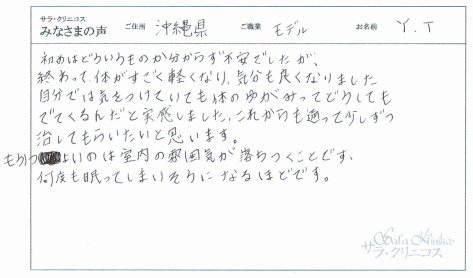 サラ・クリニコス
みなさまの声 ご住所 沖縄県 ご職業 モデル お名前 Y.T
初めはどういうものか分からず不安でしたが、
終わって、体がすごく軽くなり、気分も良くなりました
自分では気をつけていても体のゆがみってどうしても
でてくるんだと実感しました。これからも通って少しずつ
治してもらいたいと思います。
もう1つよいのは室内の雰囲気が落ちつくことです、
何度も眠ってしまいそうになるほどです。
Sara Klinikos
サラ・クリニコス